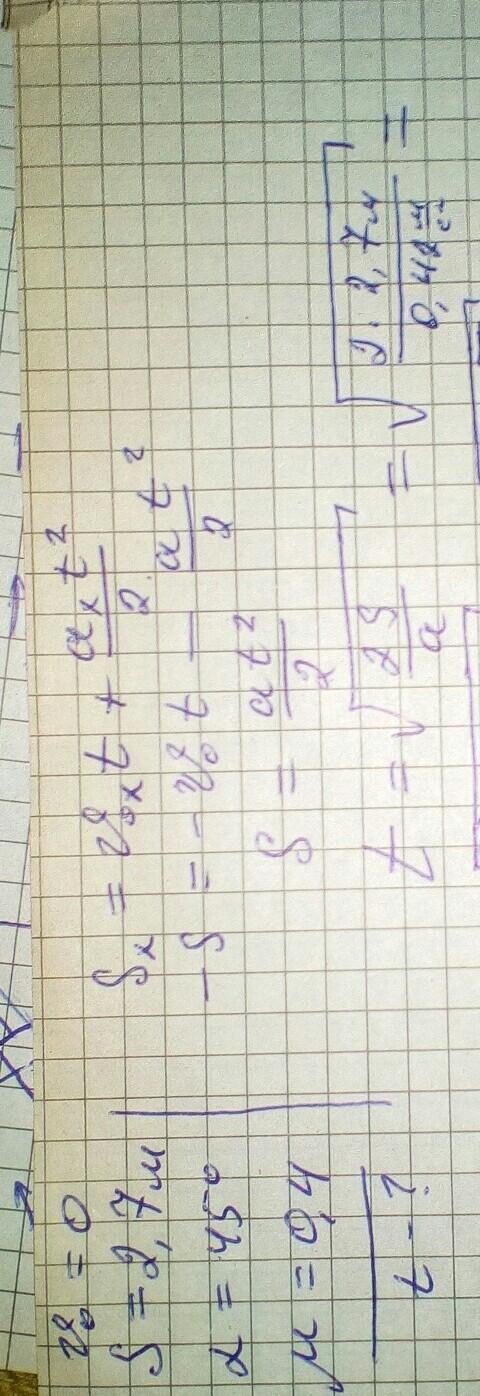 v₀ = 0
S = 2,7м
α = 45°
μ = 0,4
t - ?
Sₓ = v₀ₓt + aₓt²/2
-S = -v₀t - at²/2
S = at²/2
t = √(2S/a) = √(2·2,7м / 0,42 м/с²) =